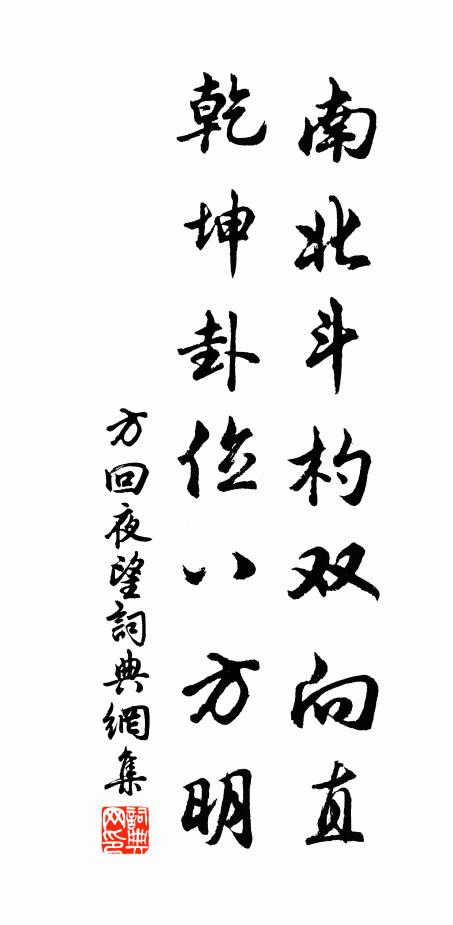 南北斗杓双向直
乾坤卦位八方明
方回夜望詞典網集
詞典网印